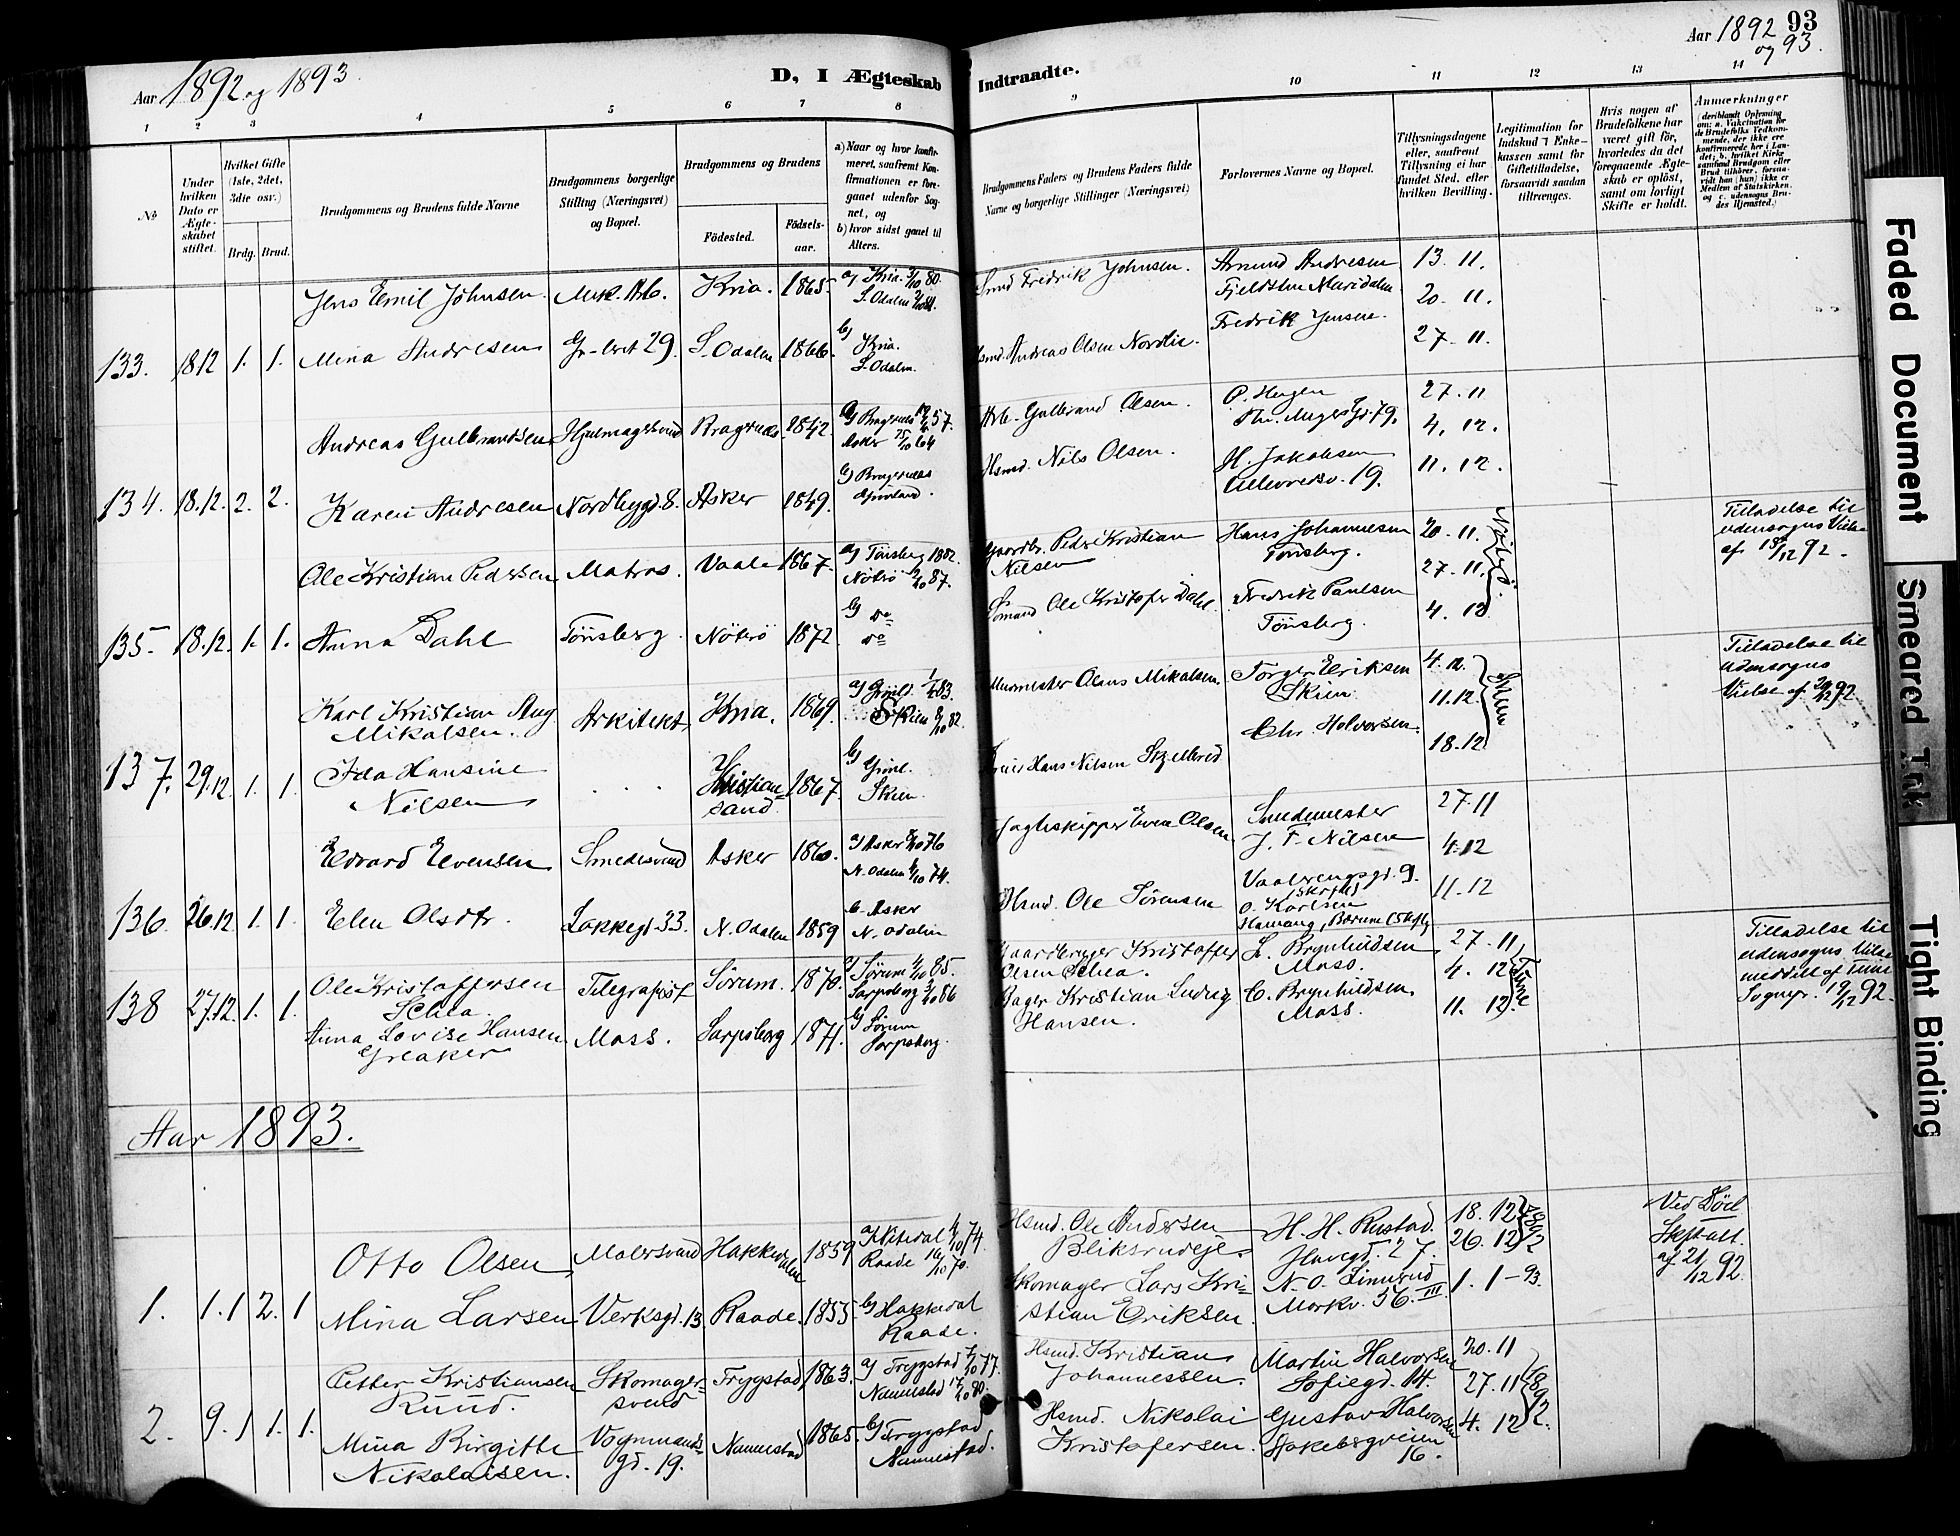 Aar 1892 og 1893
D, I Ægteskab
Indtraadte.
Aar 1892 og 93.
93
1 2 3 4 5 6 7 8 9 10 11 12 13 14
No
Under hvilken Dato er Ægteskabet stiftet.
Hvilket Gifte (1ste, 2det, 3die osv.)
Brdg. Brud.
Brudgommens og Brudens fulde Navne
Brudgommens borgerlige Stilling (Næringsvei) og Bopæl.
Brudgommens og Brudens
Fødested.
Fødselsaar.
a) Naar og hvor konfirmeret, saafremt Konfirmationen er foregaaet udenfor Sognet, og
b) hvor sidst gaaet til Alters.
Brudgommens Faders og Brudens Faders fulde Navne og borgerlige Stillinger (Næringsvei)
Forlovernes Navne og Bopæl.
Tillysningsdagene eller, saafremt Tillysning ei har fundet Sted, efter hvilken Bevilling.
Legitimation for Indskud i Enkekassen samt for Giftetilladelse, forsaavidt saadan tiltrænges.
Hvis nogen af Brudefolkene har været gift før, hvorledes da det foregaaende Ægteskab er opløst, samt om lovligt Skifte er holdt.
Anmærkninger
133. 18.12 1. 1.
Jens Emil Johnsen. Mek. Arb. Kria. 1865.
a) Kria.
S. Odalen
Mina Andresen Gr-leret 29. S. Odalen 1866.
b) Kria.
S. Odalen.
Smed Fredrik Johnsen.
Hsmd. Andreas Olsen Nordlie.
Amund Andresen
Maridalen
Fredrik Jensen.
13. 11.
20. 11.
27. 11.
134. 18.12. 2. 2.
Andreas Gulbrandsen Hjulmagersvend Bragernæs 1842.
Asker
Karen Andresen Nordbygd. 8. Asker 1849.
b) Bragernæs
Arb. Gulbrand Olsen.
Hsmd. Nils Olsen.
P. Haugen
H. Jakobsen
Ullevoldsv. 19.
27. 11
4. 12.
11. 12.
135. 18.12. 1. 1.
Ole Kristian Pedersen Matros. Vaale 1867.
a) Tønsberg 1882.
Nøtterø
Anna Dahl Tønsberg. Nøterø 1872
b) do
do
Gaardbr. Peder Kristian Nilsen
Sømand Ole Kristofer Dahl.
Hans Johannesen
Tønsberg.
Fredrik Paulsen
Tønsberg.
20. 11.
27. 11.
4. 12
Tilladelse til
udensogns Vielse
af 18/12 92.
137. 29.12. 1. 1.
Karl Kristian Aug
Mikalsen. Arkitekt Kria. 1869.
Skien
Ida Hansine
Nilsen Kristiansand. 1867.
b) Grønl.
Skien.
Murmester Olaus Mikalsen.
Hans Nilsen
Torger Eriksen
Skien
Chr. Halvorsen.
4. 12.
11. 12.
18. 12.
Skien
Tilladelse til
udensogns
Vielse af 92.
136. 26.12 1. 1.
Edvard Evensen Smedesvend Asker 1860.
a) Asker
N. Odalen
Elen Olsdtr. Lakkegd. 33. N. Odalen 1859
b. Asker
N. Odalen
Jagtskipper Even Olsen
Hsmd. Ole Sørensen
Smedemester
J. F. Nilsen
Vaalerengsgd. 9.
O. Karlsen
Bærum
27. 11
4. 12
11. 12
138 27.12. 1. 1.
Ole Kristoffersen
Telegrafist Sørum. 1870.
a) Sørum
Sarpsborg
Anna Lovise Hansen
Greaker Moss. Sarpsborg 1871.
b) Sørum
Sarpsborg.
Gaardbruger Kristoffer
Olsen
Bager Kristian Ludvig
Hansen.
L. Brynhildsen
Moss.
C. Brynhildsen
Moss.
27. 11
4. 12
11. 12.
Tune
Tilladelse til
udensogns Vielse
meddelt af Tune
Sognepr. 19/12 92.
Aar 1893.
1. 1.1 2. 1
Otto Olsen Malersvend Hakkedalen 1859
Raade
Mina Larsen Verksgd. 13 Raade. 1855.
b) Hakkedal
Raade.
Hsmd. Ole Andersen
Bliksrudeje.
Skomager Lars Kristian Eriksen.
H. H. Rustad.
Havegd. 27.
N. O. Linnerud
Markv. 56. III.
18. 12
26. 12
1. 1 - 93.
1892
Ved Død
Skifteatt.
af 21/12 92.
2. 9.1 1. 1.
Petter Kristiansen
Ruud. Skomagersvend Trygstad 1863.
a) Trygstad
Nannestad
Mina Birgitte
Nikolaisen. Vognmandsgd. 19. Nannestad 1865.
b) Trygstad
Nannestad.
Hsmd. Kristian
Johannessen.
Hsmd. Nikolai
Kristofersen.
Martin Halvorsen
Sofiegd. 14.
Gustav Halvorsen
16.
20. 11
27. 11
4. 12
1892.
Faded Document
Smeared Ink
Tight Binding